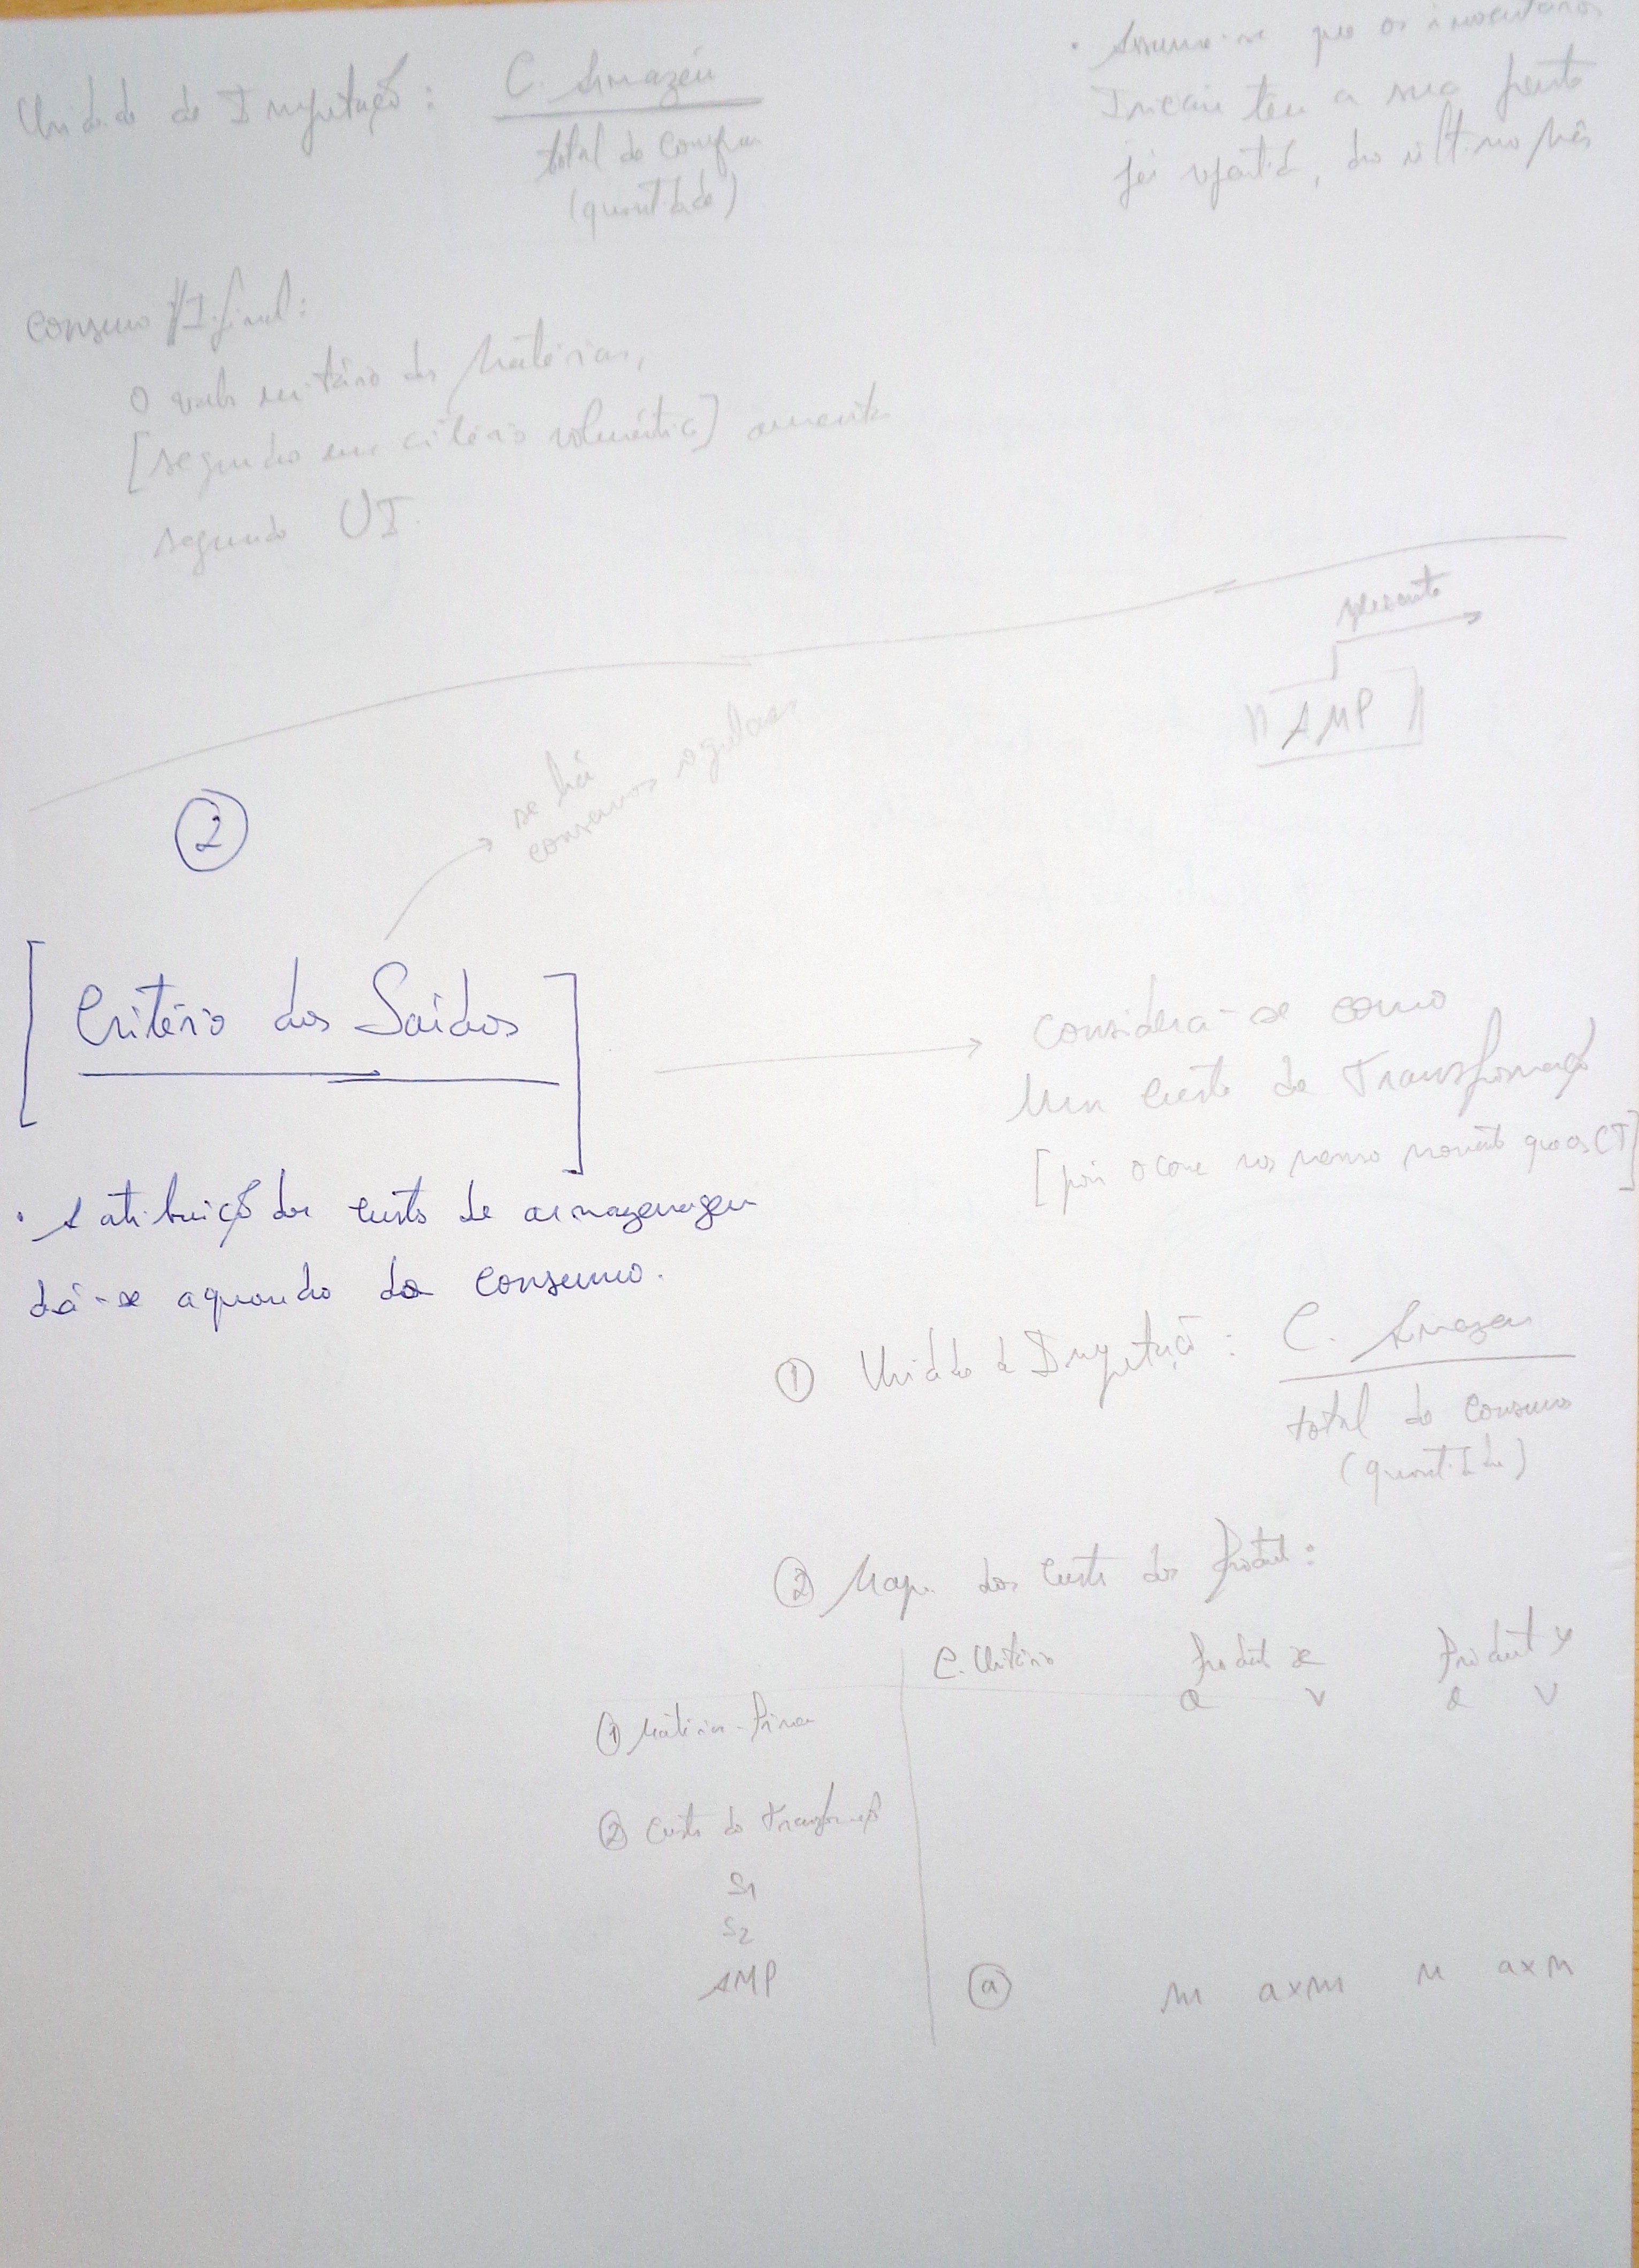 Unidade de Imputação: C. Armazém
total de compras
(quantidade)
• Assume-se que os inventários
Iniciais tem a sua parte
já repartida, do último mês
Consumo / I. final:
O valor unitário das Matérias,
[segundo um critério volumétrico] aumenta
segundo UI.
AMP
②
se há
consumos regulares
[Critério das Saídas]
Considera-se como
Um Custo de Transformação
[pois ocorre no mesmo momento que os CT]
• A atribuição dos custos de armazenagem
dá-se aquando do consumo.
① Unidade de Imputação: C. Armazem
total de consumo
(quantidade)
② Mapa dos Custos dos Produtos:
C. Unitário Produto x Produto y
Q V Q V
① Matéria-Prima
② Custos de Transformação
S1
S2
AMP ⓐ m axm n axn